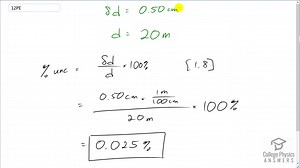 12PE
δd = 0.50 cm
d = 20 m
% unc = δd/d · 100% [1.8]
= (0.50 cm · 1m/100cm)/20m × 100%
= 0.025%
College Physics
ANSWERS